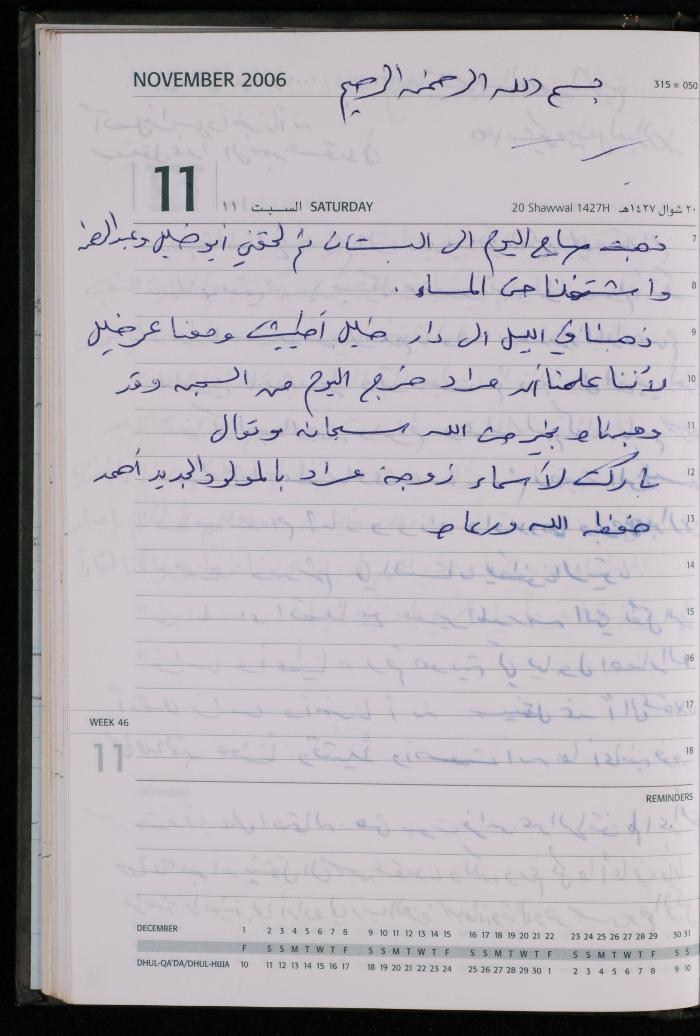 NOVEMBER 2006
بسم الله الرحمن الرحيم
315 = 050
11 السبت ١١ SATURDAY
20 Shawwal 1427H ٢٠ شوال ١٤٢٧هـ
7 ذهبت صباح اليوم الى البستان ثم لحقني أبو خليل
8 واشتغلنا حتى المساء .
9 ذهبنا في الليل الى دار خليل ومعنا عمر خليل
10 لأننا علمنا أن مراد خرج اليوم من السجن وقد
11 وجدناه بخير من الله سبحانه وتعالى
12 نبارك لأسماء زوجة مراد بالمولود الجديد أحمد
13 حفظه الله ورعاه
14
15
16
17
WEEK 46
18
11
REMINDERS
DECEMBER 1 2 3 4 5 6 7 8 9 10 11 12 13 14 15 16 17 18 19 20 21 22 23 24 25 26 27 28 29 30 31
F S S M T W T F S S M T W T F S S M T W T F S S M T W T F S S
DHUL-QA'DA/DHUL-HIJJA 10 11 12 13 14 15 16 17 18 19 20 21 22 23 24 25 26 27 28 29 30 1 2 3 4 5 6 7 8 9 10